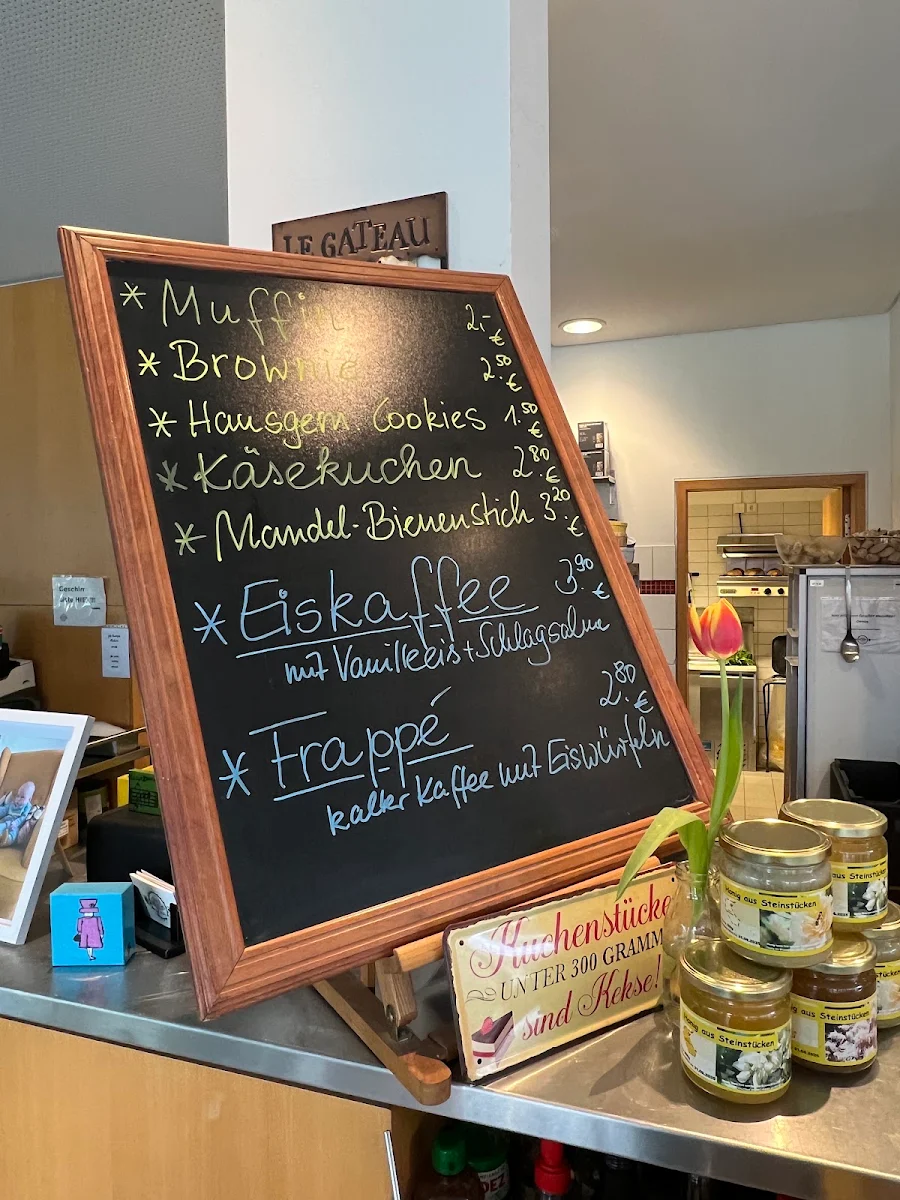 LE GATEAU
* Muffin 2,- €
* Brownie 2.50 €
* Hausgem Cookies 1.50 €
* Käsekuchen 2.80 €
* Mandel-Bienenstich 3.20 €
* Eiskaffee 3.90 €
mit Vanilleeis + Schlagsahne
* Frappé 2.80 €
kalter Kaffee mit Eiswürfeln
Kuchenstücke
UNTER 300 GRAMM
sind Kekse!
Honig aus Steinstücken
aus Steinstücken
Honig aus Steinstücken
aus Steinstücken